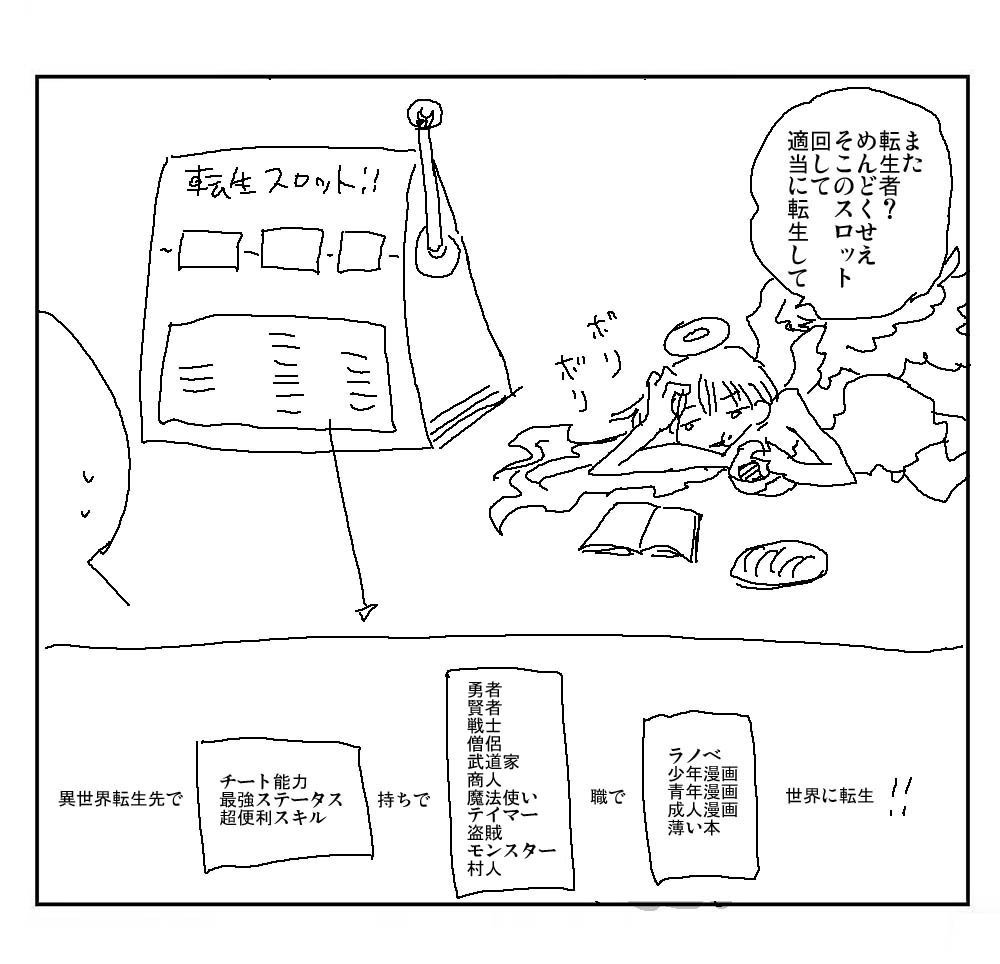 また
転生者？
めんどくせえ
そこのスロット
回して
適当に転生して
転生スロット!!
ボリ
ボリ
異世界転生先で
チート能力
最強ステータス
超便利スキル
持ちで
勇者
賢者
戦士
僧侶
武道家
商人
魔法使い
テイマー
盗賊
モンスター
村人
職で
ラノベ
少年漫画
青年漫画
成人漫画
薄い本
世界に転生 !!